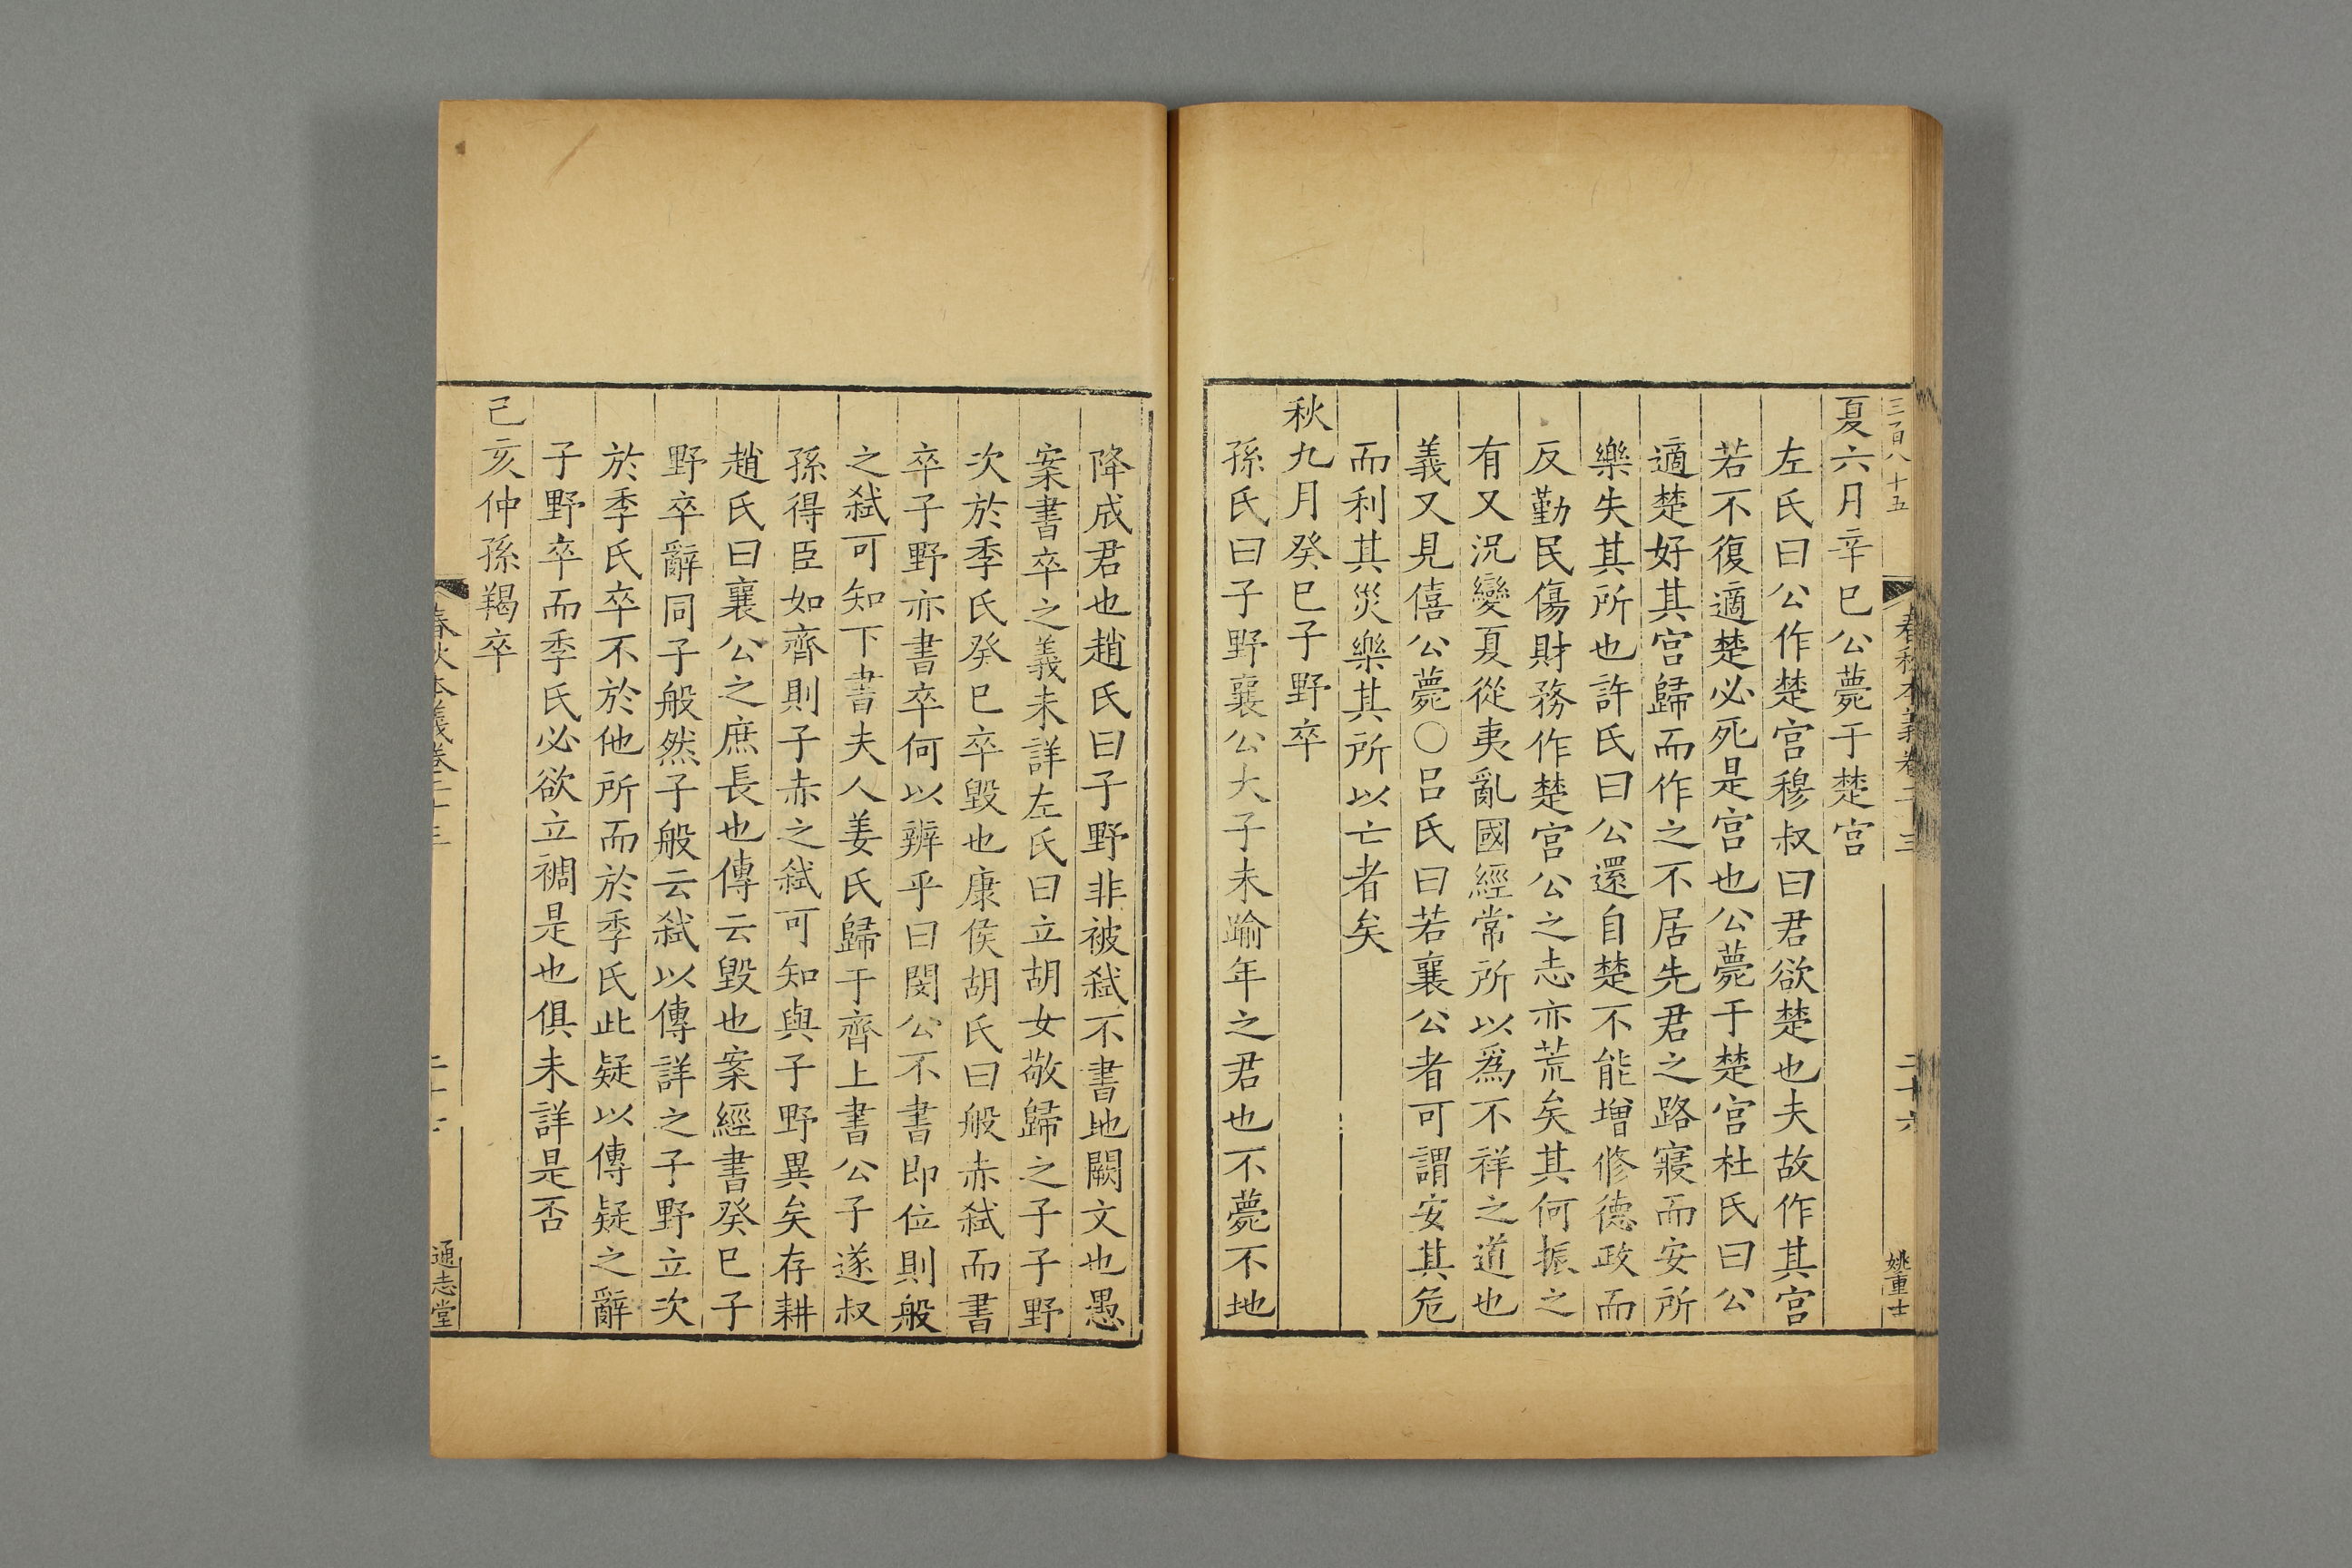 三百八十五
春秋本義卷二十三
二十六
姚重士
夏六月辛巳公薨于楚宫
左氏曰公作楚宫穆叔曰君欲楚也夫故作其宫
若不復適楚必死是宫也公薨于楚宫杜氏曰公
適楚好其宫歸而作之不居先君之路寢而安所
樂失其所也許氏曰公還自楚不能增修德政而
反勤民傷財務作楚宫公之志亦荒矣其何振之
有又況變夏從夷亂國經常所以爲不祥之道也
義又見僖公薨○吕氏曰若襄公者可謂安其危
而利其災樂其所以亡者矣
秋九月癸巳子野卒
孫氏曰子野襄公大子未踰年之君也不薨不地
降成君也趙氏曰子野非被弑不書地闕文也愚
案書卒之義未詳左氏曰立胡女敬歸之子子野
次於季氏癸巳卒毀也康侯胡氏曰般赤弑而書
卒子野亦書卒何以辨乎曰閔公不書即位則般
之弑可知下書夫人姜氏歸于齊上書公子遂叔
孫得臣如齊則子赤之弑可知與子野異矣存耕
趙氏曰襄公之庶長也傳云毀也案經書癸巳子
野卒辭同子般然子般云弑以傳詳之子野立次
於季氏卒不於他所而於季氏此疑以傳疑之辭
子野卒而季氏必欲立裯是也俱未詳是否
己亥仲孫羯卒
春秋本義卷二十三
通志堂